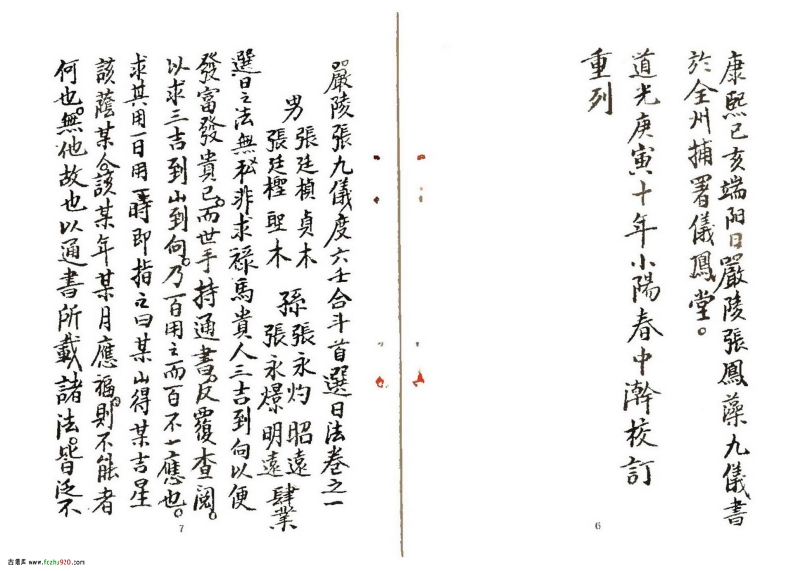 康熙己亥端阳日嚴陵張鳳藻九儀書
於全州捕署儀鳳堂。
道光庚寅十年小陽春中澣校訂
重列
6
嚴陵張九儀度六壬合斗首選日法卷之一
男張廷楨貞木 孫張永灼昭遠
張廷檉聖木 張永爆明遠肆業
選日之法無私非求祿馬貴人三吉到向以便
發富發貴已。而世手持通書。反覆查閱。
以求三吉到山到向。乃百用之而百不一應也。
求其用一日用一時即指之曰某山得某吉星
該蔭某命。該某年某月應福。則不能者
何也。無他故也以通書所載諸法。皆泛不
7
古易库 www.fczhu920.com